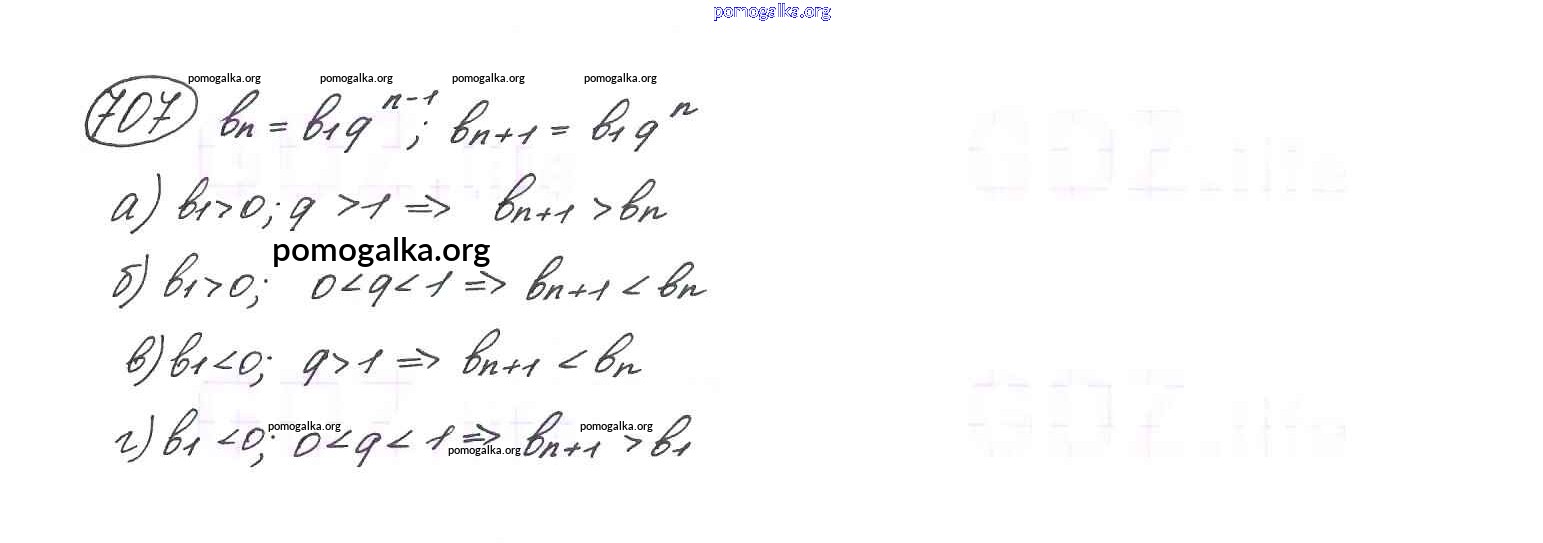 pomogalka.org
pomogalka.org pomogalka.org pomogalka.org pomogalka.org
707 bn = b1q^n-1; bn+1 = b1q^n
а) b1>0; q >1 => bn+1 >bn
pomogalka.org
б) b1>0; 0<q<1 => bn+1 < bn
в) b1<0; q>1 => bn+1 < bn
г) b1 <0; 0<q< 1 => bn+1 >b1
pomogalka.org pomogalka.org
pomogalka.org